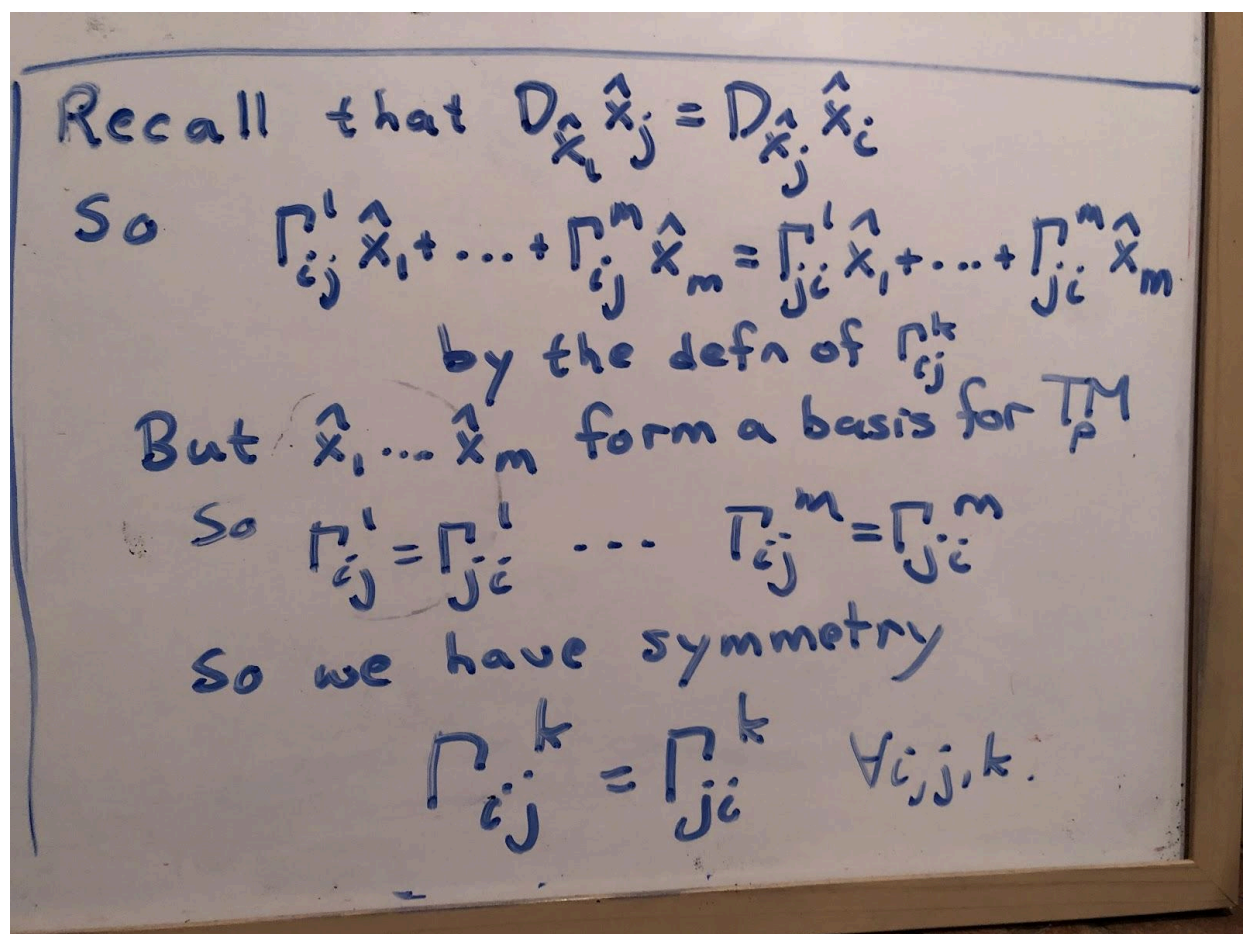 Recall that D_{x̂_i} x̂_j = D_{x̂_j} x̂_i
So Γ_{ij}^1 x̂_1 + ... + Γ_{ij}^m x̂_m = Γ_{ji}^1 x̂_1 + ... + Γ_{ji}^m x̂_m
by the defn of Γ_{ij}^k
But x̂_1 ... x̂_m form a basis for T_pM
So Γ_{ij}^1 = Γ_{ji}^1 ... Γ_{ij}^m = Γ_{ji}^m
So we have symmetry
Γ_{ij}^k = Γ_{ji}^k ∀i,j,k.